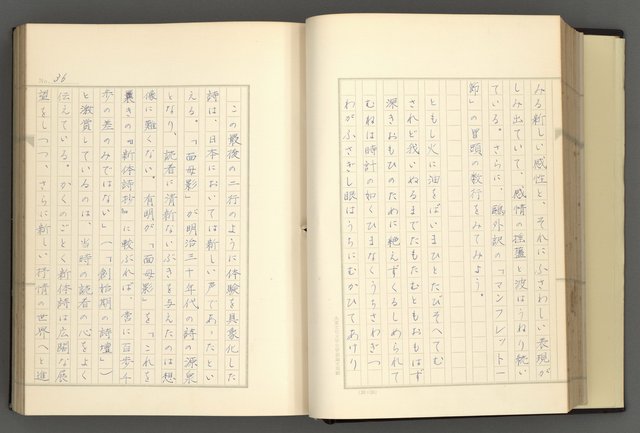 みる新しい感性と、それにふさわしい表現が
しみ出ていて、感情の陰翳と波はうねり続い
ている。さらに、鷗外訳の「マンフレット一
節」の冒頭の数行をみてみよう。
ともし火に油をばいまひとたびそへてむ
されど我いぬるまでたもたむともおもはず
深きおもひのために絶えずくるしめられて
むねは時計の如くひまなくうちさわぎつ
わがふさぎし眼はうちにむかひてあけり
No. 36
この最後の二行のように体験を具象化した
詩は、日本においては新しい声であったとい
える。「面母影」が明治三十年代の詩の源泉
となり、読者に清新ないぶきを与えたのは想
像に難くない。有明が「面母影」を「これを
曩きの『新体詩抄』に較ぶれば、啻に百歩千
歩の差のみではない」(「創始期の詩壇」)
と激賞しているのは、当時の読者の心をよく
伝えている。かくのごとく新体詩は広闊な展
望をしつつ、さらに新しい抒情の世界へと進